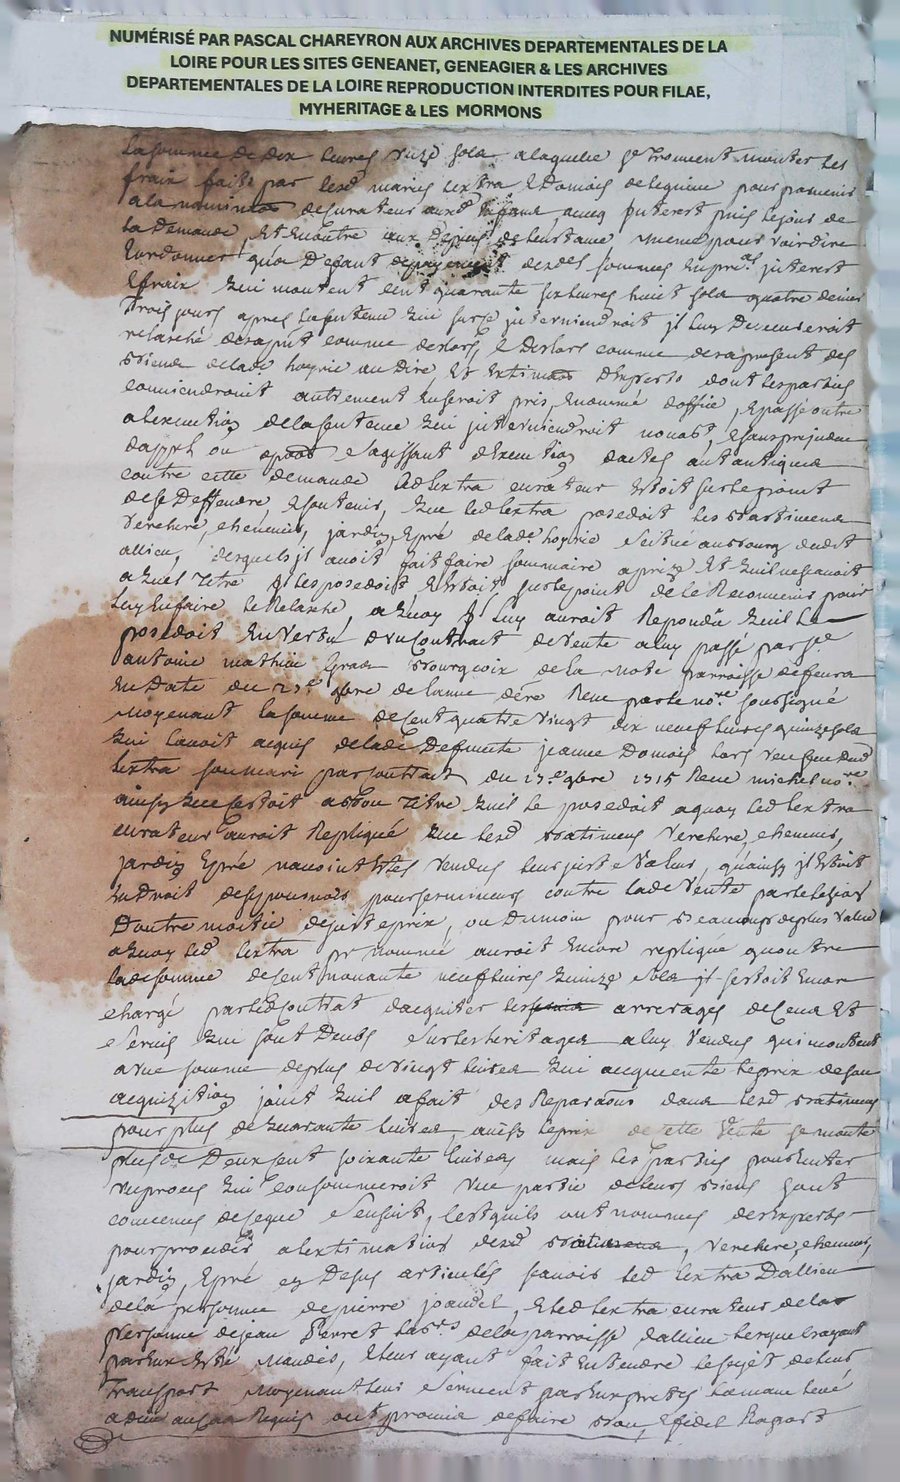 NUMÉRISÉ PAR PASCAL CHAREYRON AUX ARCHIVES DEPARTEMENTALES DE LA
LOIRE POUR LES SITES GENEANET, GENEAGIER & LES ARCHIVES
DEPARTEMENTALES DE LA LOIRE REPRODUCTION INTERDITES POUR FILAE,
MYHERITAGE & LES MORMONS
la somme de dix livres sols a laquelle se trouvent monter les
frais faits par lesd mariés lextra & Domois pour parvenir
a la decurateur avec interest puis le jour de
la demande, et encontre aux depens de linstance
qua defaut desdes sommes interest
& frais qui montent cent quarante six livres huict sols quatre deniers
trois jours apres la sentence qui sur ce interviendroit il luy
relaché desapnt comme deslors, & deslors comme desapresent des
biens de lade hoyrie au dire et dexperts dont les parties
conviendroint autrement en seroit pris, & nommé doffice, & passé outre
a lexecution de la sentence qui interviendroit nonobst, & sans prejudice
dappel ou & sagissant dexecution dactes autantiques
contre cette demande led lextra curateur estoit sur le point
de se deffendre, & soutenir, que led lextra posedoit les bastiments
verchere, chenevier, jardin, & pré de lade hoyrie scitué au bourg dudt
allieu, desquels il avoit fait faire sommaire aprize et quil ne scavoit
a quel titre il les posedoit & estoit sur le point de le pour
luy en faire le relaxhe, a quoy il luy auroit repondu quil le
posedoit en vertu dun contrait de vente a luy passé par sr
antoine mathieu bourgeoix de la mote parroisse de feurs
en date du 9bre de lanne dere receu par le nore soussigné
moyenant la somme de cent quatre vingt dix neuf livres quinze sols
qui lavoit acquis de lade deffuncte jeanne Domois lors veufve dud
lextra son mari par contrait du 13e 9bre 1715 receu michel nore
ainsy que cestoit a bon titre quil le posedoit a quoy led lextra
curateur auroit repliqué que lesd batiments verchere, chenevier,
jardin & pré navoint estes vendus leur juste valeur, quainsy il estoit
en droit contre lade vente par lezion
doutre moitié de juste prix, ou du moin pour beaucoup de plus value
a quoy led lextra pr nommé auroit encore repliqué quoutre
lade somme de cent nonante neuf livres quinze sols il sestoit encore
chargé par led contrat dacquiter les arrerages de cens et
servis qui sont deubs sur les heritages a luy vendus qui montent
a une somme de plus de vingt livres qui augmente le prix de son
acquizition joint quil a fait des reparaons dans lesd batiments
pour plus de quarante livres, ainsy le prix de cette vente se monte
plus de deux cent soixante livres mais les parties pour eviter
un proces qui consommeroit une partie de leurs biens sont
convenues de ce que sensuit, cest quils ont nommes des experts
pour proceder a lextimation desd , verchere, chenevier,
jardin, & pré cy desus articulés scavoir led lextra Dallieu
de la personne de pierre , & led lextra curateur de la
personne de jean Perret de la parroisse dallieu lesquels ayant
par eux esté mandés, & leur ayant fait entendre le sujet de leur
transport moyenant leur serment par eux prettés la main levé
a dieu au cas requis ont promis de faire bon, & fidel raport